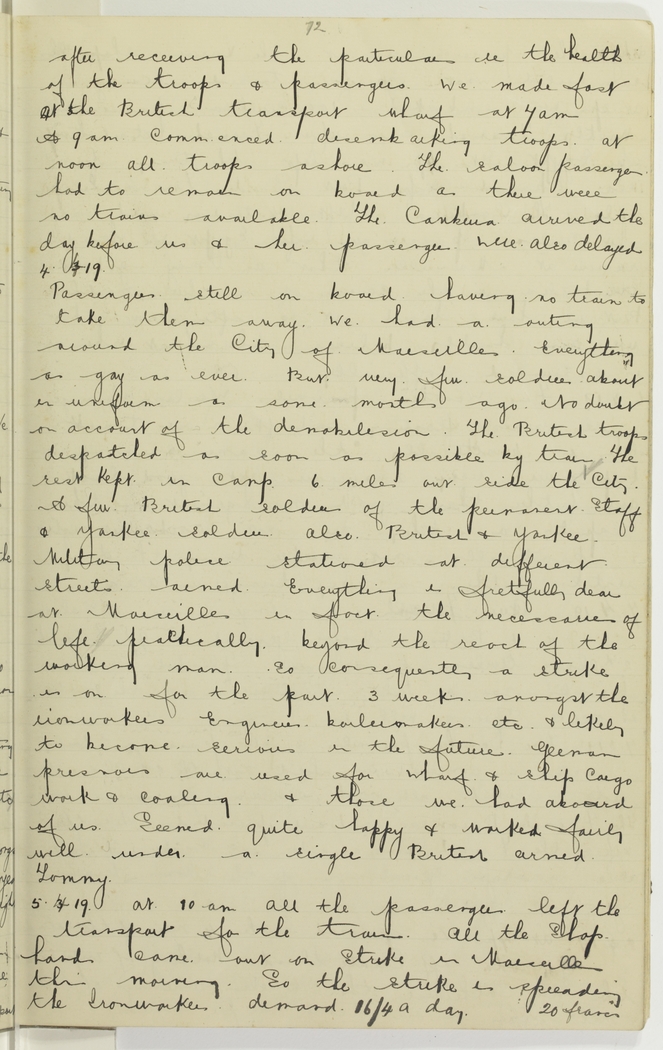 72
after receiving the particulars re the health
of the troops & passengers. We made fast
at the British transport wharf at 7am
& 9am commenced disembarking troops. at
noon all troops ashore. The saloon passengers
had to remain on board as there were
no trains available. The Canberra arrived the
day before us & her passengers were also delayed
4. 4 19.
Passengers still on board having no train to
take them away. We had a outing
around the City of Marseilles. Everything
as gay as ever. But very few soldiers about
in uniform as some months ago. No doubt
on account of the demobilision. The British troops
despatched as soon as possible by train The
rest kept in Camp 6 miles out side the City.
A few British soldiers of the permanent Staff
& Yankee soldiers also British & Yankee
Military police stationed at different
streets armed. Everything is fretfully dear
at Marseilles in fact the necessaries of
life practically beyond the reach of the
working man. So consequently a strike
is on for the past 3 weeks amongst the
ironworkers Engineers boilermakers etc. & likely
to become serious in the future. German
presnors are used for wharf & ship Cargo
work & coaling. & those we had aboard
of us seened quite happy & worked fairly
well under a single British armed
Tommy.
5. 4 19 at 10 am all the passengers left the
transport for the train. All the Shop
hands came out on Strike in Marseilles
this morning. So the strike is spreading
the Ironworkers demand 16/4 a day. 20 francs